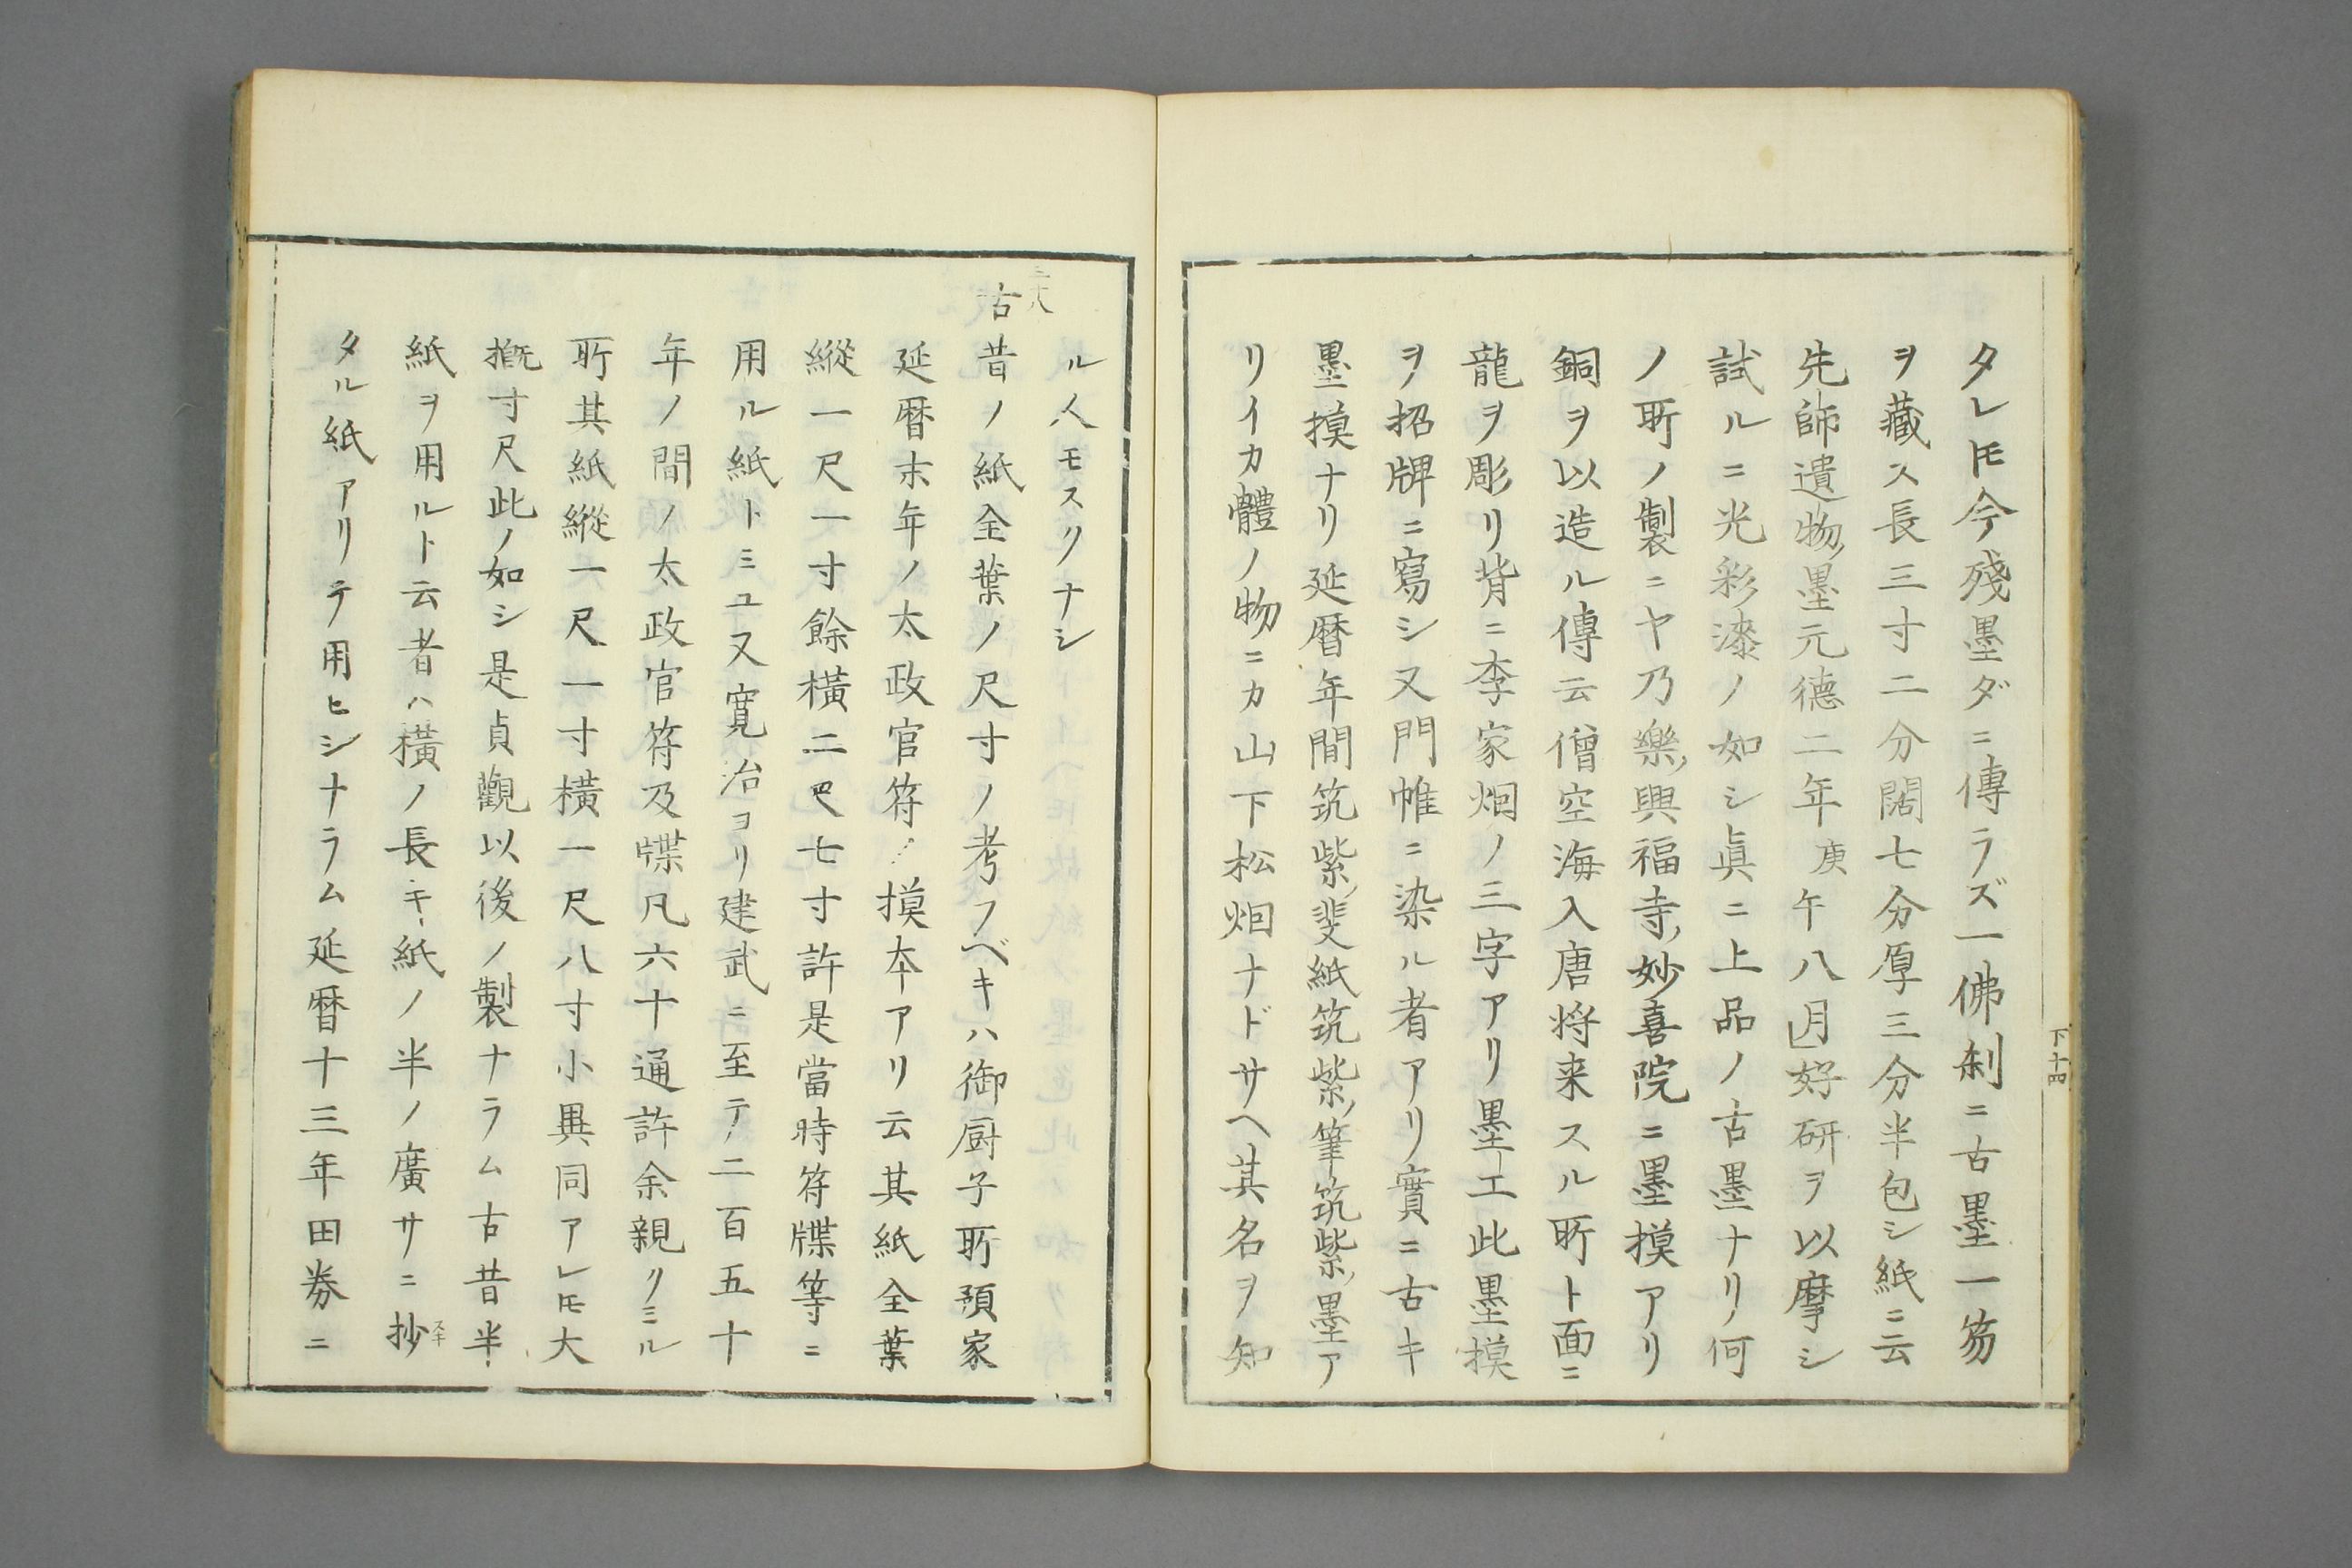 タレ𪜈今殘墨ダニ傳ラズ一佛刹ニ古墨一笏
ヲ藏ス長三寸二分闊七分厚三分半包シ紙ニ云
先師遺物墨元德二年庚午八月好研ヲ以摩シ
試ルニ光彩漆ノ如シ眞ニ上品ノ古墨ナリ何
ノ所ノ製ニヤ乃樂興福寺妙喜院ニ墨摸アリ
銅ヲ以造ル傳云僧空海入唐將来スル所ト面ニ
龍ヲ彫リ背ニ李家烟ノ三字アリ墨工此墨摸
ヲ招牌ニ寫シ又門帷ニ染ル者アリ實ニ古キ
墨摸ナリ延暦年間筑紫斐紙筑紫筆筑紫墨ア
リイカ體ノ物ニカ山下松烟ナドサヘ其名ヲ知
下十四
ル人モスクナシ
古昔ノ紙全葉ノ尺寸ノ考フベキハ御厨子所預家
延暦末年ノ太政官符ノ摸本アリ云其紙全葉
縱一尺一寸餘橫二尺七寸許是當時符牒等ニ
用ル紙トミユ又寬治ヨリ建武ニ至テ二百五十
年ノ間ノ太政官符及牒凡六十通許余親クミル
所其紙縱一尺一寸橫一尺八寸小異同アレ𪜈大
槪寸尺此ノ如シ是貞觀以後ノ製ナラム古昔半
紙ヲ用ルト云者ハ橫ノ長キ紙ノ半ノ廣サニ抄スキ
タル紙アリテ用ヒシナラム延暦十三年田券ニ